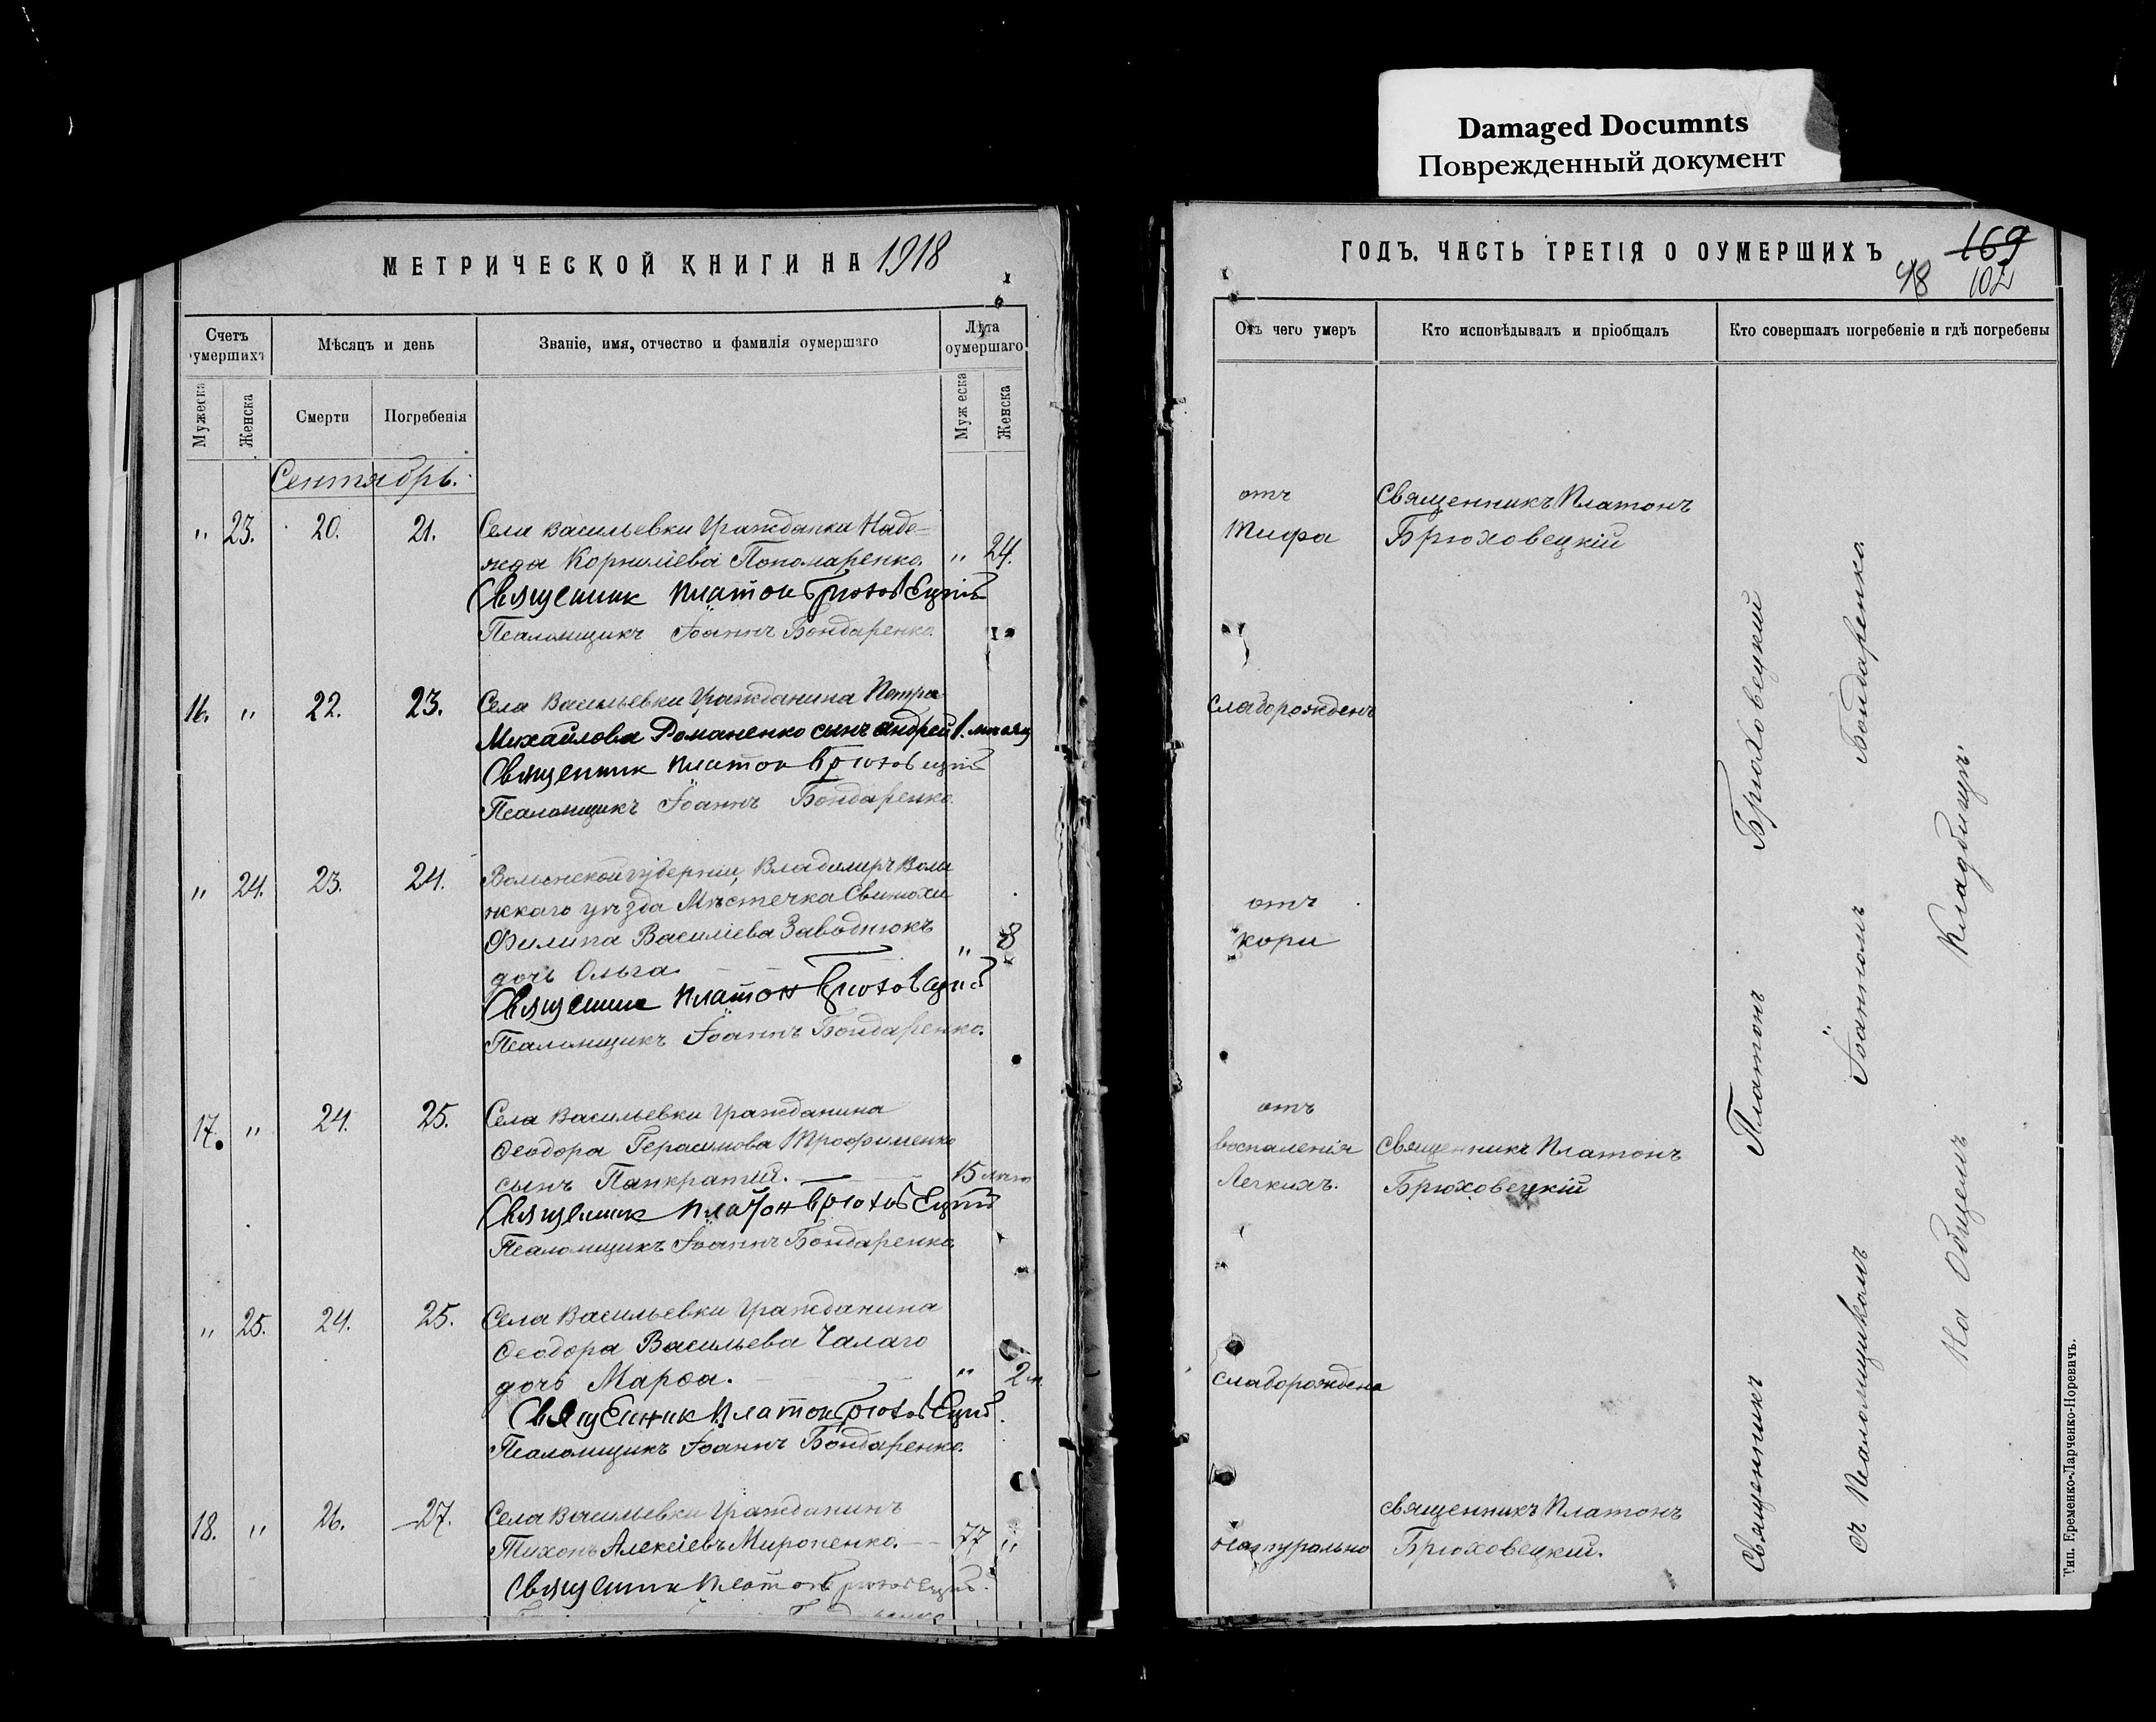 Damaged Documnts
Поврежденный документ
МЕТРИЧЕСКОЙ КНИГИ НА 1918
Счетъ умершихъ
Мѣсяцъ и день
Званіе, имя, отчество и фамилія оумершаго
Лѣта оумершаго
Мужеска
Женска
Смерти
Погребенія
Мужеска
Женска
Сентябрь.
" 23. 20. 21. Села Васильевки Гражданка Наде-
жда Корниліева Пономаренко. " 24.
Священник Платон Брюховецкій
Псаломщикъ Іоаннъ Бондаренко.
16. " 22. 23. Села Васильевки Гражданина Петра
Михайлова Романенко сынъ Андрей 1. мѣсяц
Священник Платон Брюховецкій
Псаломщикъ Іоаннъ Бондаренко.
" 24. 23. 24. Волынской губерніи, Владимиръ Волы
нскаго уѣзда Мѣстечка Свинюхи
Филипа Василіева Заводнюкъ
дочь Ольга. " 8
Священник Платон Брюховецкій
Псаломщикъ Іоаннъ Бондаренко.
17. " 24. 25. Села Васильевки Гражданина
Ѳеодора Герасимова Трофименко
сынъ Панкратій. 15 лѣт
Священник Платон Брюховецкій
Псаломщикъ Іоаннъ Бондаренко
" 25. 24. 25. Села Васильевки Гражданина
Ѳеодора Васильева Чалаго
дочь Марѳа. " 2 м.
Священик Платон Брюховецкій
Псаломщикъ Іоаннъ Бондаренко.
18. " 26. 27. Села Васильевки Гражданинъ
Тихонъ Алексіевъ Мироненко. 77 "
Священник Платон Брюховецкій.
ГОДЪ. ЧАСТЬ ТРЕТІЯ О ОУМЕРШИХЪ
169
48 102
Отъ чего умеръ
Кто исповѣдывалъ и пріобщалъ
Кто совершалъ погребеніе и гдѣ погребены
отъ Священникъ Платонъ
Тифа Брюховецкій
Слаборожденъ
отъ
кори
отъ
воспаленія Священникъ Платонъ
Легкихъ. Брюховецкій
Слаборождена
Священникъ Платонъ
натурально Брюховецкій.
Священникъ Платонъ Брюховецкій
съ Псаломщикомъ Іоанномъ Бондаренко.
На Общемъ Кладбищѣ.
Тип. Еременко-Ларченко-Норевичъ.